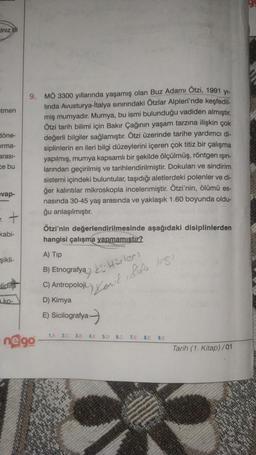 9. MÖ 3300 yıllarında yaşamış olan Buz Adamı Ötzi, 1991 yı-
lında Avusturya-İtalya sınırındaki Ötzlar Alpleri'nde keşfedil-
miş mumyadır. Mumya, bu ismi bulunduğu vadiden almıştır.
Ötzi tarih bilimi için Bakır Çağının yaşam tarzına ilişkin çok
değerli bilgiler sağlamıştır. Ötzi üzerinde tarihe yardımcı di-
siplinlerin en ileri bilgi düzeylerini içeren çok titiz bir çalışma
yapılmış, mumya kapsamlı bir şekilde ölçülmüş, röntgen ışın-
larından geçirilmiş ve tarihlendirilmiştir. Dokuları ve sindirim
sistemi içindeki buluntular, taşıdığı aletlerdeki polenler ve di-
ğer kalıntılar mikroskopla incelenmiştir. Ötzi'nin, ölümü es-
nasında 30-45 yaş arasında ve yaklaşık 1.60 boyunda oldu-
ğu anlaşılmıştır.
Ötzi'nin değerlendirilmesinde aşağıdaki disiplinlerden
hangisi çalışma yapmamıştır?
A) Tıp
B) Etnografya
C) Antropoloji
D) Kimya
E) Sicilografya
etmen
döne-
ırma-
arası-
ce bu
evap-
kabi-
şikli-
Tarih (1. Kitap) / 01